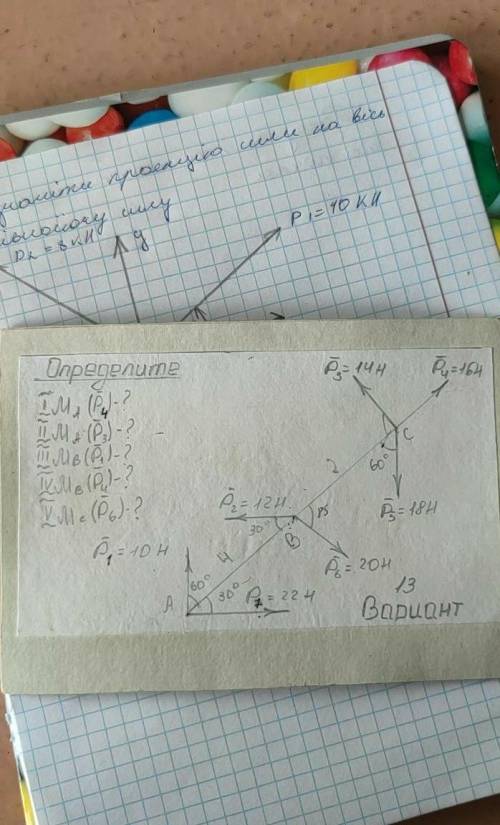 проекцію сили на вісь
силу
P₂ = 8 кН
y
P₁ = 10 кН
Определите
I M_A (P̄₄) - ?
II M_A (P̄₃) - ?
III M_B (P̄₁) - ?
IV M_B (P̄₄) - ?
V M_C (P̄₆) - ?
P̄₃ = 14Н
P̄₄ = 16Н
C
60°
2
P̄₅ = 18Н
P̄₂ = 12Н
30°
B
P̄₆ = 20Н
4
P̄₁ = 10Н
60°
30°
A
P̄₇ = 22Н
13
Вариант